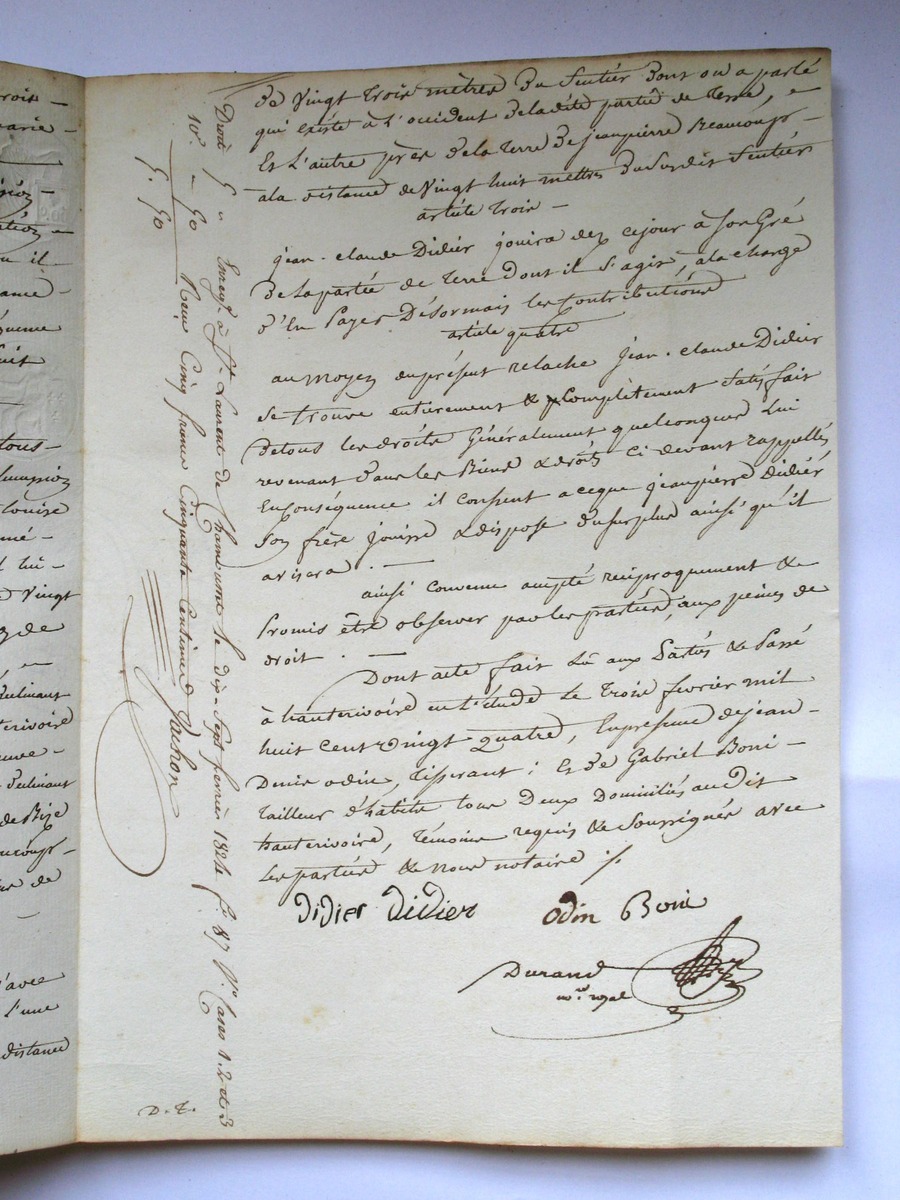 de vingt trois mètres du sentier dont on a parlé
qui existe à l'occident de la dite partie de terre, e
Et l'autre près de la terre de jeanpierre Beaucoup-
a la distance de vingt huit mettres du susdit sentier
article trois -
jean-claude Didier jouira dez cejour à son Gré
de la partie de terre dont il s'agit, a la charge
d'en payer Désormais les Contributions
article quatre
au moyen du présent relache jean-claude Didier
se trouve entièrement & complètement satisfait
de tous les droits Généralement quelconques lui
revenant dans les Biens & droits ci devant rappellés
En conséquence il consent a ceque jeanpierre Didier
son frère jouisse & dispose du surplus ainsi qu'il
avisera . -
ainsi convenu accepté réciproquement &
promis être observer par les parties, aux peines de
droit . -
Dont acte fait lû aux parties & passé
à hauterivoire en l'étude le trois février mil
huit cent vingt quatre, En présence de jean-
Denis odin, tisserant ; Et de Gabriel Boni -
tailleur d'habits tous deux domiciliés au dit
hauterivoire, témoins requis & soussignés avec
les parties & nous notaire ./.
didier didier odin Boni
Durand
nore royal
Droit 5 " Enregé à St Laurent de Chamousset le dix-sept février 1824 fo 87 Vo Cases 1. 2 et 3
10e " 50 Reçu Cinq francs Cinquante Centimes
5. 50
D. T.
roix -
arie -
tous -
louise
mé -
lui -
vingt
de
terivoire
de Bize
de
avec
l'une
distance